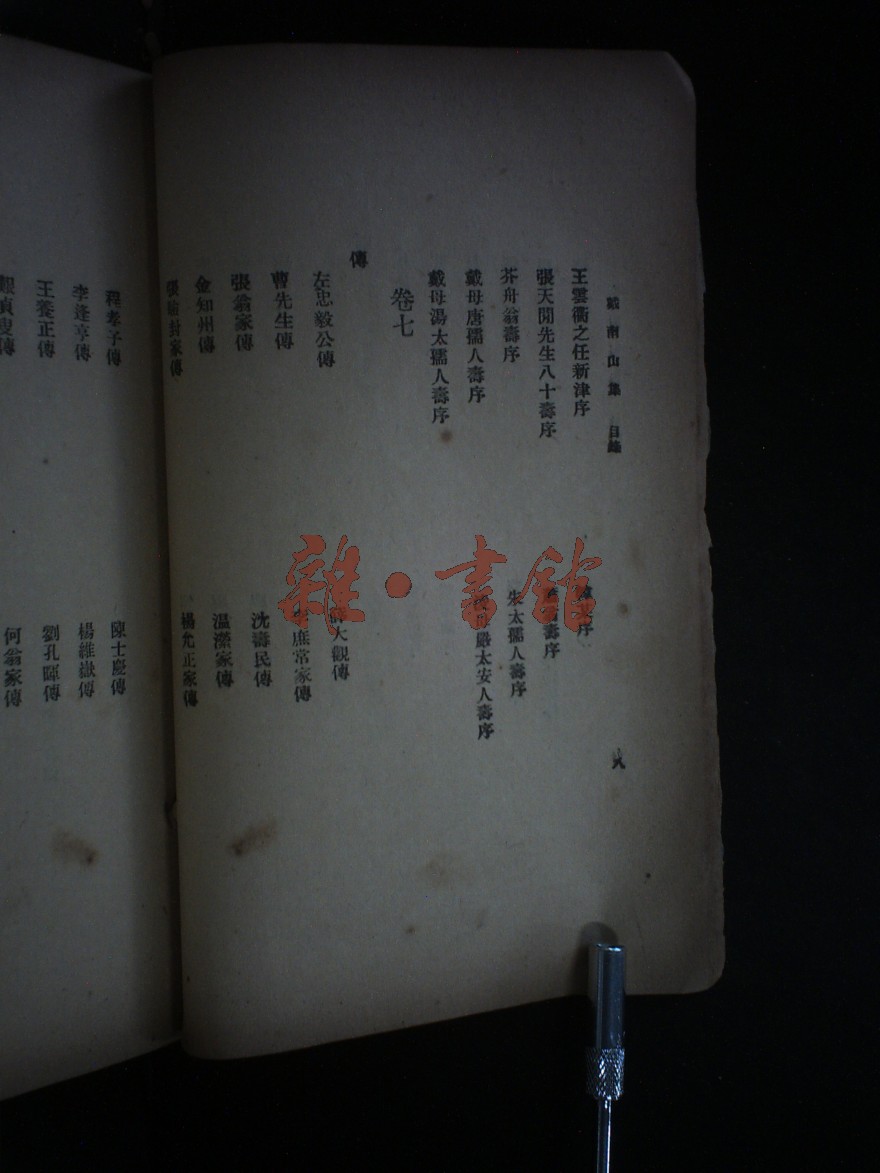 戴南山集 目錄 八
王雲衢之任新津序
張天閒先生八十壽序
壽序
芥舟翁壽序
朱太孺人壽序
戴母唐孺人壽序
嚴太安人壽序
戴母湯太孺人壽序
卷七
傳
左忠毅公傳
薛大觀傳
曹先生傳
庶常家傳
張翁家傳
沈壽民傳
金知州傳
温濚家傳
張驗封家傳
楊允正家傳
程孝子傳
陳士慶傳
李逢亨傳
楊維嶽傳
王養正傳
劉孔暉傳
傳
何翁家傳
雜·書館